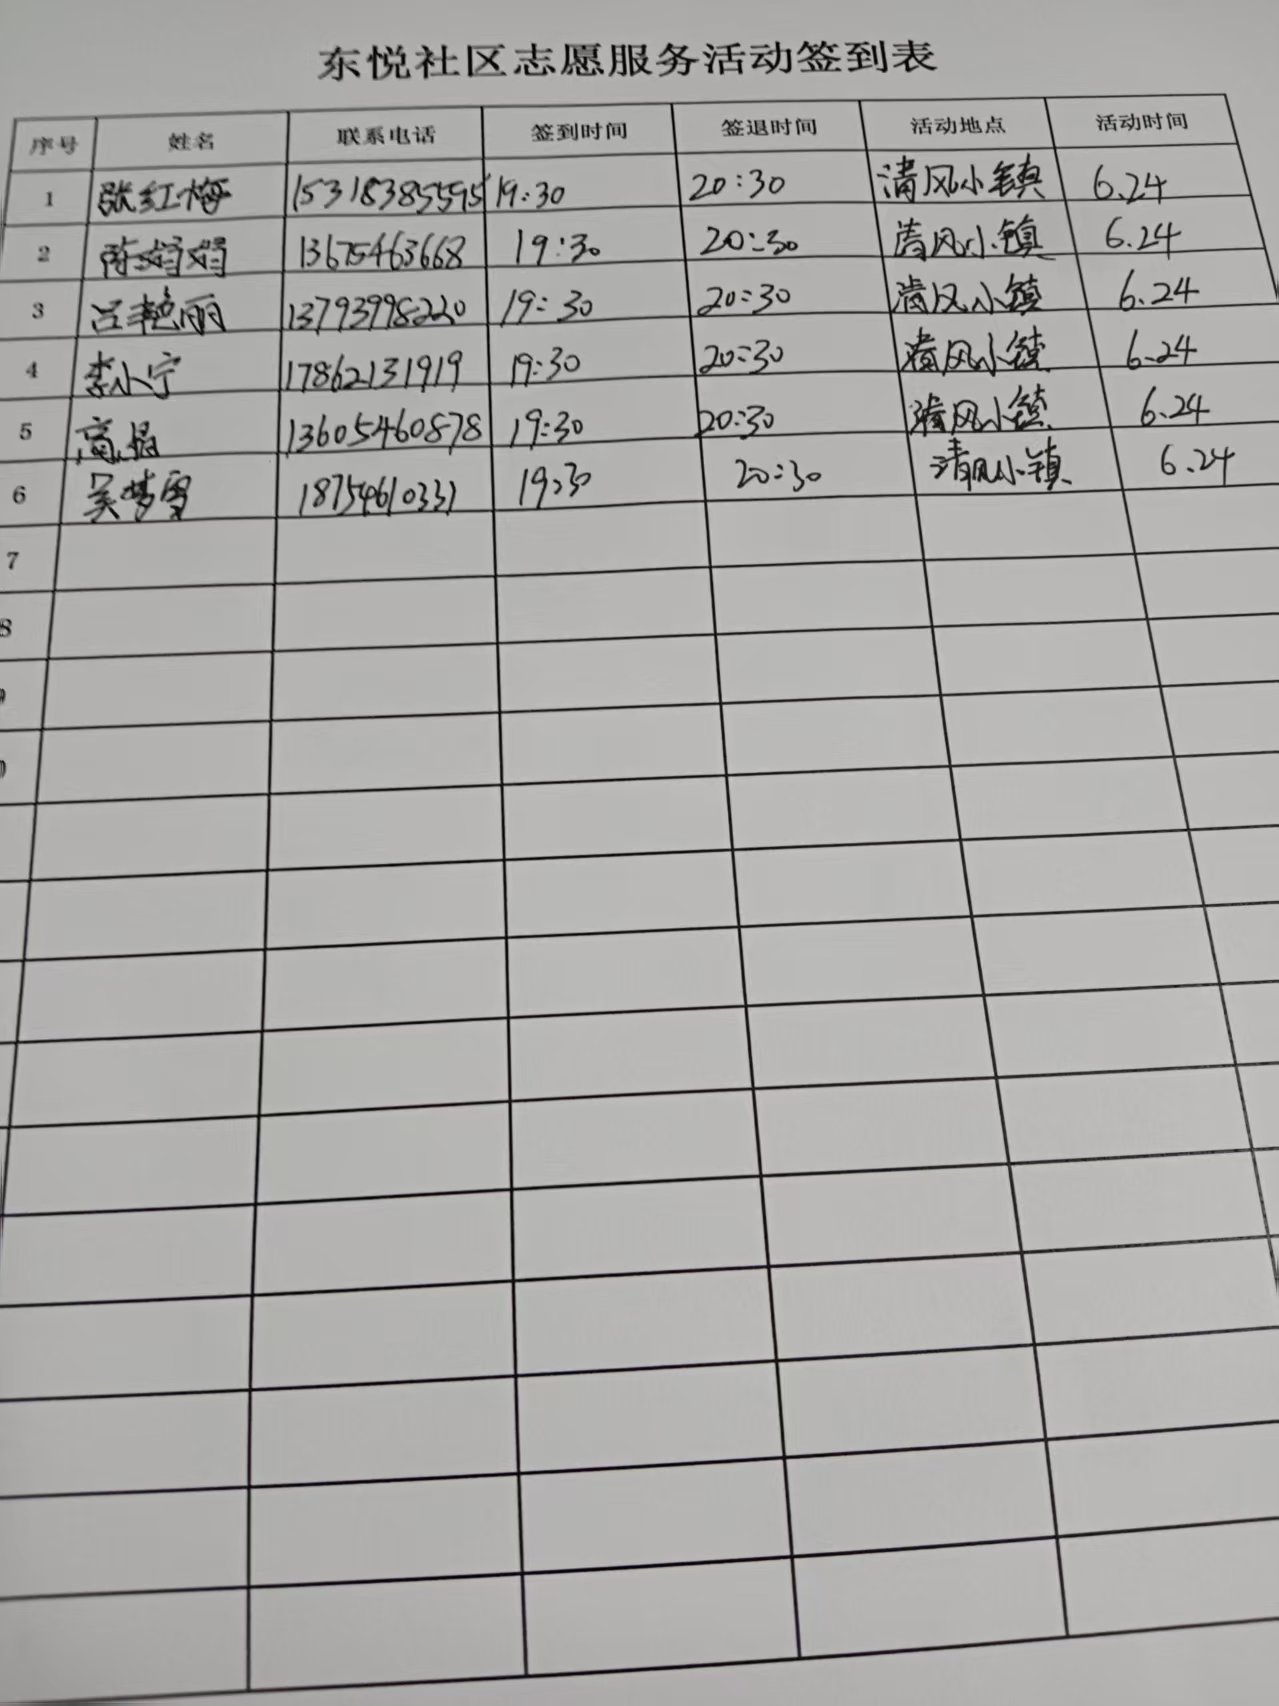 东悦社区志愿服务活动签到表
序号 姓名 联系电话 签到时间 签退时间 活动地点 活动时间
1 张红梅 15318385595 19:30 20:30 清风小镇 6.24
2 陈娟娟 13675463668 19:30 20:30 清风小镇 6.24
3 吕艳丽 13793998220 19:30 20:30 清风小镇 6.24
4 李小宁 17862131919 19:30 20:30 清风小镇 6.24
5 高晶 13605460878 19:30 20:30 清风小镇 6.24
6 吴梦雪 18754610331 19:30 20:30 清风小镇 6.24
7
8